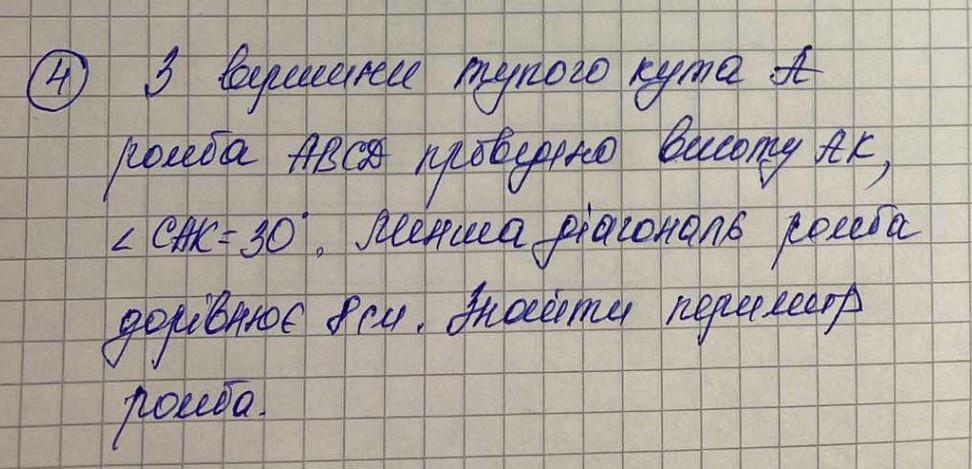 4 З вершини тупого кута А
ромба ABCD проведено висоту АК,
∠ САК = 30°. Менша діагональ ромба
дорівнює 8 см. Знайти периметр
ромба.